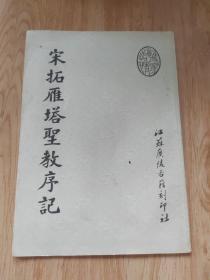 宋拓雁塔聖教序記
江蘇廣陵古籍刻印社